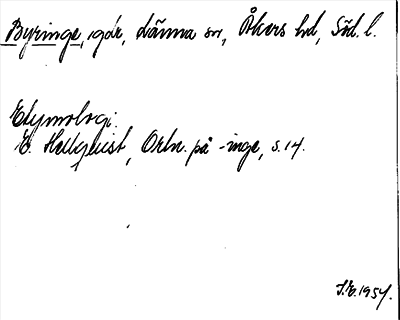 Byringe, går, Länna sn, Åkers hd, Söd. l.
Etymologi:
E. Hellquist, Ortn. på -inge, s. 14.
1954.